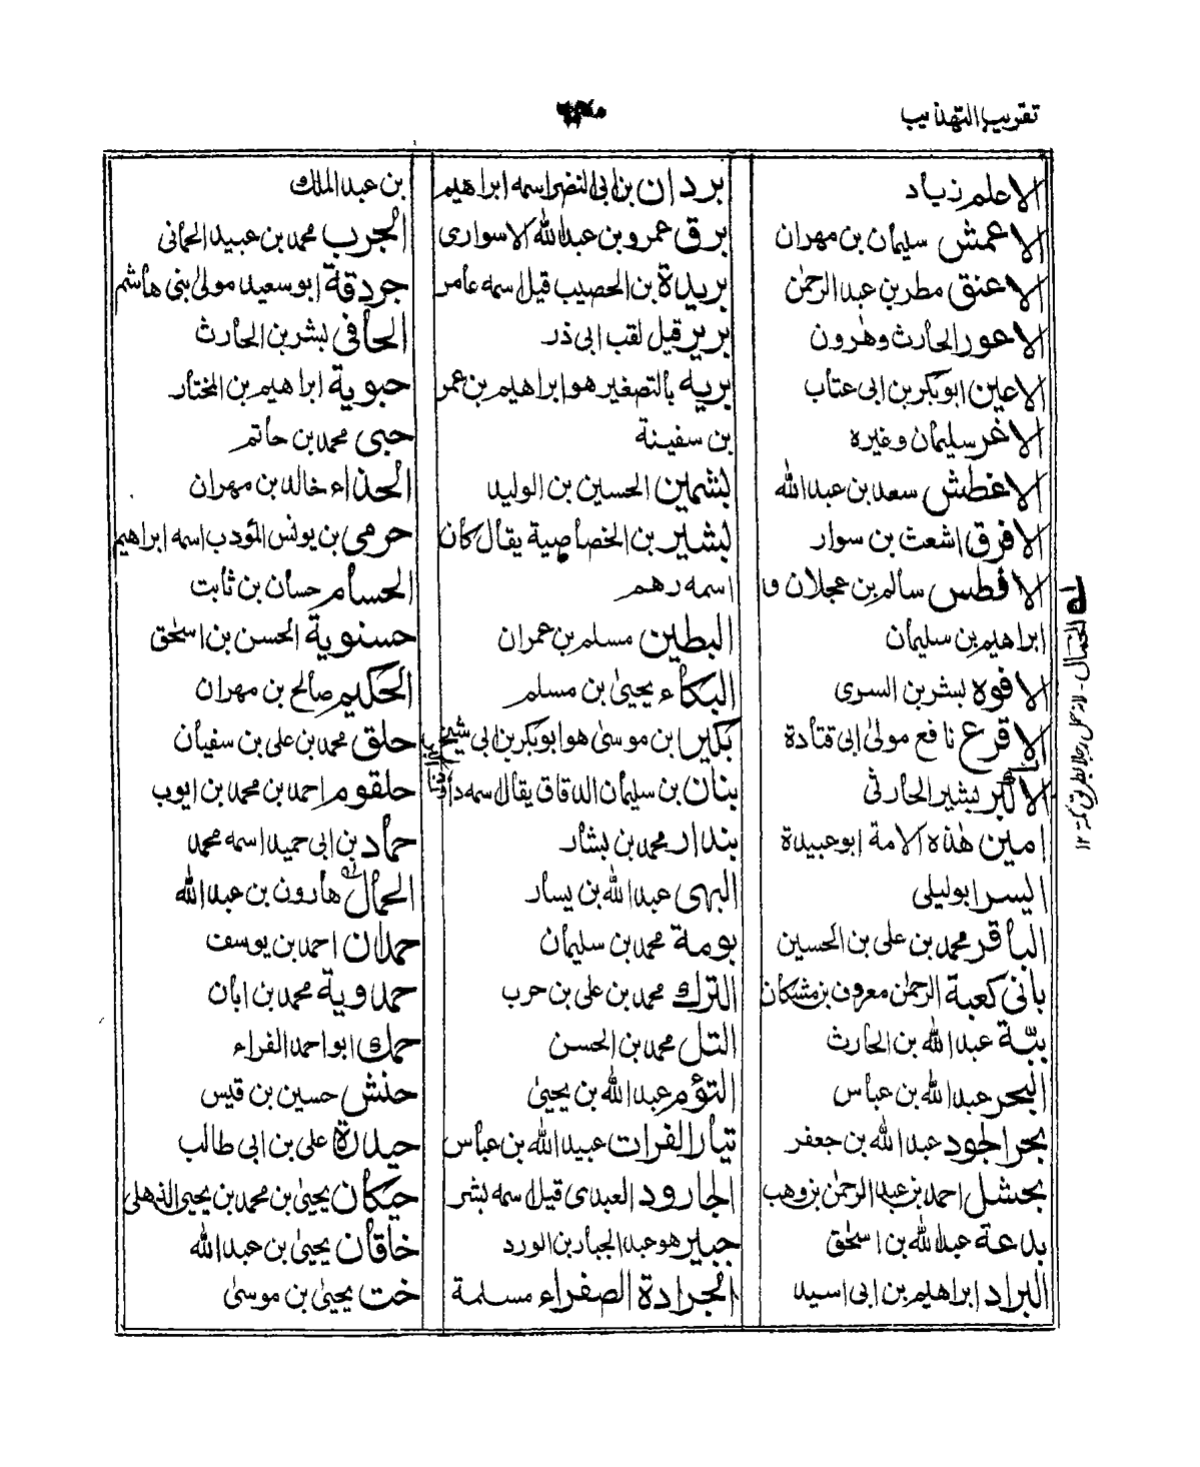 تقريب التهذيب
الاعلم زياد
الاعمش سليمان بن مهران
الاعنق مطر بن عبد الرحمٰن
الاعور الحارث وهٰرون
الاعين ابو بكر بن ابى عتاب
الاغر سليمان وغيره
الاغطش سعد بن عبد الله
الافرق اشعث بن سوار
الافطس سالم بن عجلان و
ابراهيم بن سليمان
الافوه بشر بن السرى
الاقرع نافع مولىٰ ابى قتادة
الاكبر بشير الحارثى
امين هٰذه الامة ابو عبيدة
اليسر ابو ليلى
الباقر محمد بن على بن الحسين
بانى كعبة الرحمٰن معروف بن مشكان
ببّة عبد الله بن الحارث
البحر عبد الله بن عباس
بحر الجود عبد الله بن جعفر
بحشل احمد بن عبد الرحمٰن بن وهب
بدعة عبد الله بن اسحٰق
البراد ابراهيم بن ابى اسيد
بردان بن ابى النضر اسمه ابراهيم
برق عمرو بن عبد الله الاسوارى
بريدة بن الحصيب قيل اسمه عامر
برير قيل لقب ابى ذر
بريه بالتصغير هو ابراهيم بن عمر
بن سفينة
بشمين الحسين بن الوليد
بشير بن الخصاصية يقال كان
اسمه رهم
البطين مسلم بن عمران
البكاء يحيىٰ بن مسلم
بكير ابن موسىٰ هو ابو بكر بن ابى شيخ
بنان بن سليمان الدقاق يقال اسمه داؤد
بندار محمد بن بشار
البهى عبد الله بن يسار
بومة محمد بن سليمان
الترك محمد بن على بن حرب
التل محمد بن الحسن
التؤم عبد الله بن يحيىٰ
تيار الفرات عبيد الله بن عباس
الجارود العبدى قيل اسمه بشر
جبير هو عبد الجبار بن الورد
الجرادة الصفراء مسلمة
بن عبد الملك
الجرب محمد بن عبيد الحمانى
جردقة ابو سعيد مولىٰ بنى هاشم
الحافى بشر بن الحارث
حبوية ابراهيم بن المختار
حبى محمد بن حاتم
الحذاء خالد بن مهران
حرمى بن يونس المؤدب اسمه ابراهيم
الحسام حسان بن ثابت
حسنوية الحسن بن اسحٰق
الحكيم صالح بن مهران
حلق محمد بن على بن سفيان
حلقوم احمد بن محمد بن ايوب
حماد بن ابى حميد اسمه محمد
الحمال هارون بن عبد الله
حمدان احمد بن يوسف
حمدوية محمد بن ابان
حمك ابو احمد الفراء
حنش حسين بن قيس
حيدرة على بن ابى طالب
حيكان يحيىٰ بن محمد بن يحيىٰ الذهلى
خاقان يحيىٰ بن عبد الله
خت يحيىٰ بن موسىٰ